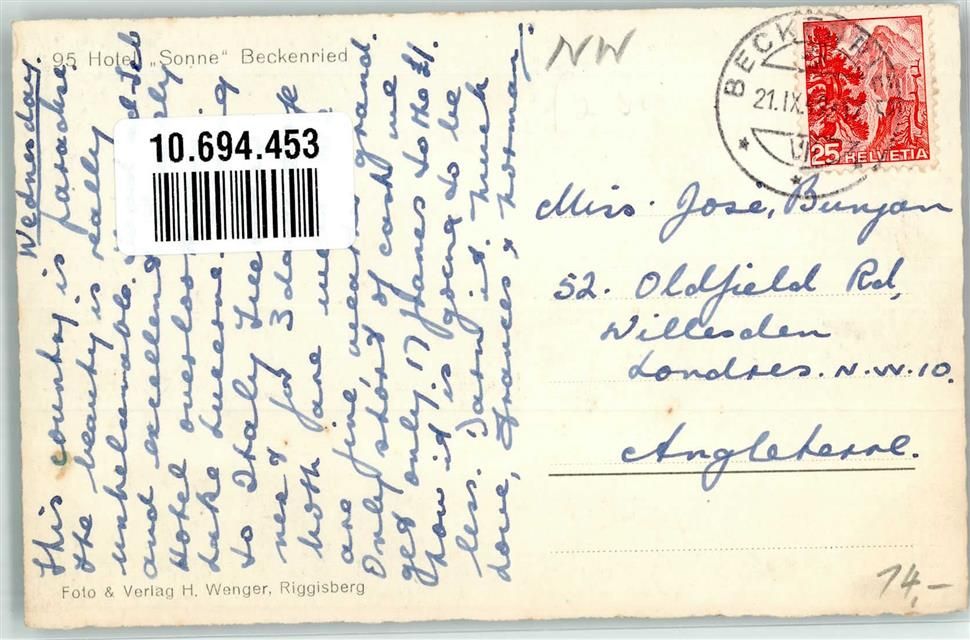 95 Hotel „Sonne“ Beckenried
NW
BECK
21.IX.
VI
25 HELVETIA
10.694.453
Wednesday.
This country is paradise.
the beauty is really
unbelievable.
and excellent
Hotel overloo
Lake Lucerne.
to Italy
next for 3 da
both are
are fine weather grand.
Only short of cash we
get only 17 francs to the £1.
how it is going to be
less. Damn it. Much
love, Frances & Norman
Miss. Jose, Bunyan
52. Oldfield Rd,
Willesden
Londres. N.W.10.
Angleterre.
Foto & Verlag H. Wenger, Riggisberg
14,-